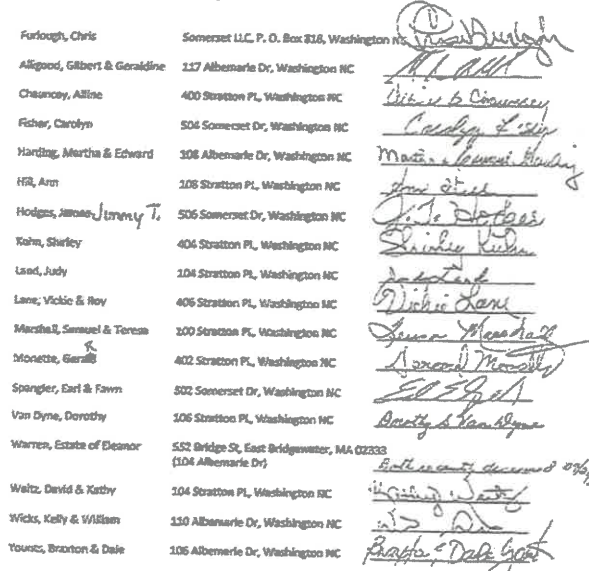 Furlough, Chris Somerset LLC, P. O. Box 818, Washington NC Chris Furlough
Alligood, Gilbert & Geraldine 117 Albemarle Dr, Washington NC
Chauncey, Alline 400 Stratton PL, Washington NC B Chauncey
Fisher, Carolyn 504 Somerset Dr, Washington NC Carolyn Fisher
Harding, Martha & Edward 108 Albemarle Dr, Washington NC Harding
Hill, Ann 108 Stratton PL, Washington NC Ann Hill
Hodges, James Jimmy T. 506 Somerset Dr, Washington NC J. T. Hodges
Kuhn, Shirley 404 Stratton PL, Washington NC Shirley Kuhn
Land, Judy 104 Stratton PL, Washington NC Judy Land
Lane, Vickie & Roy 406 Stratton PL, Washington NC Vickie Lane
Marshall, Samuel & Teresa 100 Stratton PL, Washington NC Teresa Marshall
Monette, Gerald 402 Stratton PL, Washington NC
Spangler, Earl & Fawn 502 Somerset Dr, Washington NC
Van Dyne, Dorothy 106 Stratton PL, Washington NC Dorothy S Van Dyne
Warren, Estate of Eleanor 552 Bridge St, East Bridgewater, MA 02333
(104 Albemarle Dr) Both recently deceased
Waltz, David & Kathy 104 Stratton PL, Washington NC Waltz
Wicks, Kelly & William 110 Albemarle Dr, Washington NC
Younts, Braxton & Dale 106 Albemarle Dr, Washington NC Braxton & Dale